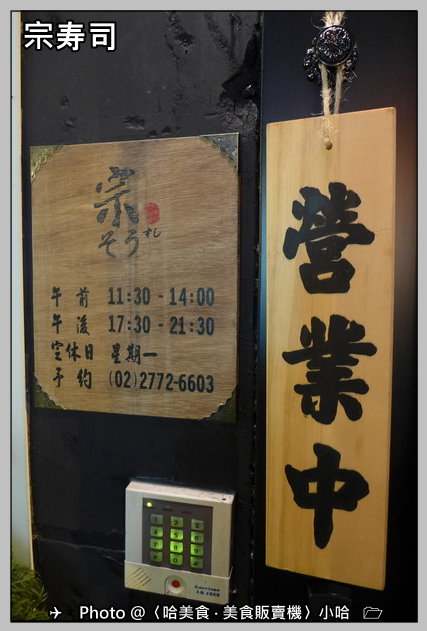 宗寿司
宗
そう
すし
午前 11:30 - 14:00
午後 17:30 - 21:30
定休日 星期一
予約 (02)2772-6603
營業中
1 2 3
4 5 6
7 8 9
0
Photo @〈哈美食‧美食販賣機〉小哈